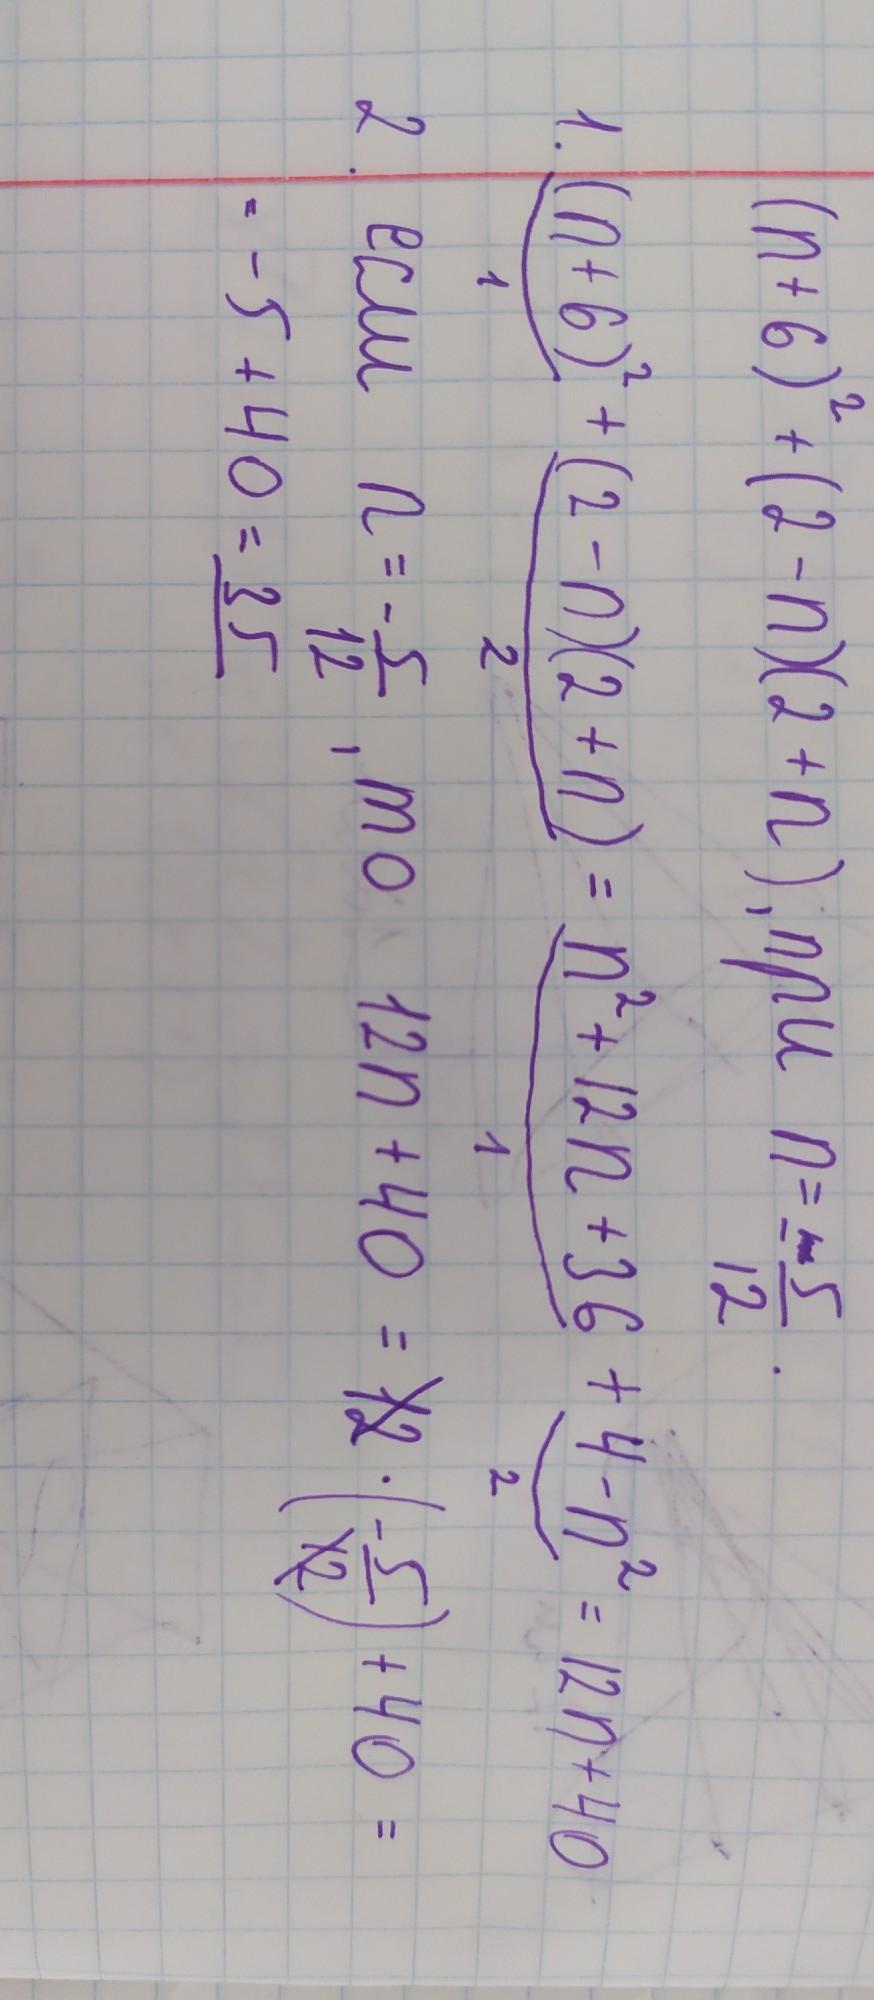 (n+6)² + (2-n)(2+n), при n = -5/12.
1. (n+6)² + (2-n)(2+n) = n² + 12n + 36 + 4 - n² = 12n + 40
1 2 1 2
2. если n = -5/12, то 12n + 40 = 12 · (-5/12) + 40 =
= -5 + 40 = 35